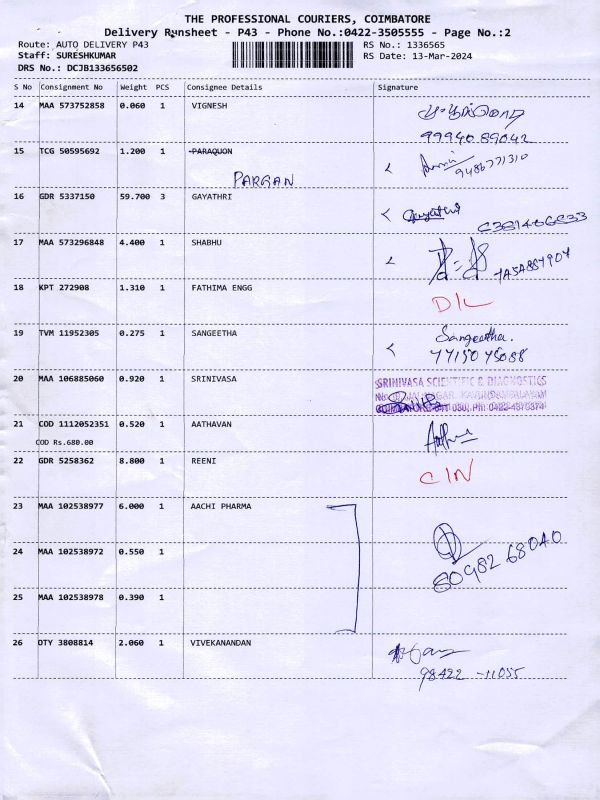 THE PROFESSIONAL COURIERS, COIMBATORE
Delivery Runsheet - P43 - Phone No.:0422-3505555 - Page No.:2
Route: AUTO DELIVERY P43 RS No.: 1336565
Staff: SURESHKUMAR RS Date: 13-Mar-2024
DRS No.: DCJB133656502
S No Consignment No Weight PCS Consignee Details Signature
14 MAA 573752858 0.060 1 VIGNESH
99940 89042
15 TCG 50595692 1.200 1 PARAQUON
PARGAN 9486771310
16 GDR 5337150 59.700 3 GAYATHRI Gayathri
17 MAA 573296848 4.400 1 SHABHU
18 KPT 272908 1.310 1 FATHIMA ENGG D/L
19 TVM 11952305 0.275 1 SANGEETHA Sangeetha.
77150 75088
20 MAA 106885060 0.920 1 SRINIVASA SRINIVASA SCIENTIFIC & DIAGNOSTICS
21 COD 1112052351 0.520 1 AATHAVAN
COD Rs.680.00
22 GDR 5258362 8.800 1 REENI C/N
23 MAA 102538977 6.000 1 AACHI PHARMA
24 MAA 102538972 0.550 1 80982 68040
25 MAA 102538978 0.390 1
26 OTY 3808814 2.060 1 VIVEKANANDAN
98422 -11055